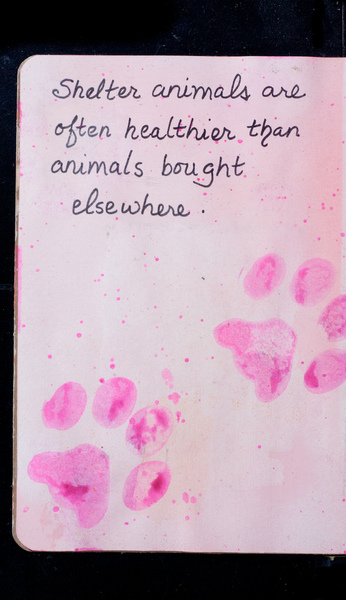 Shelter animals are
often healthier than
animals bought
elsewhere.